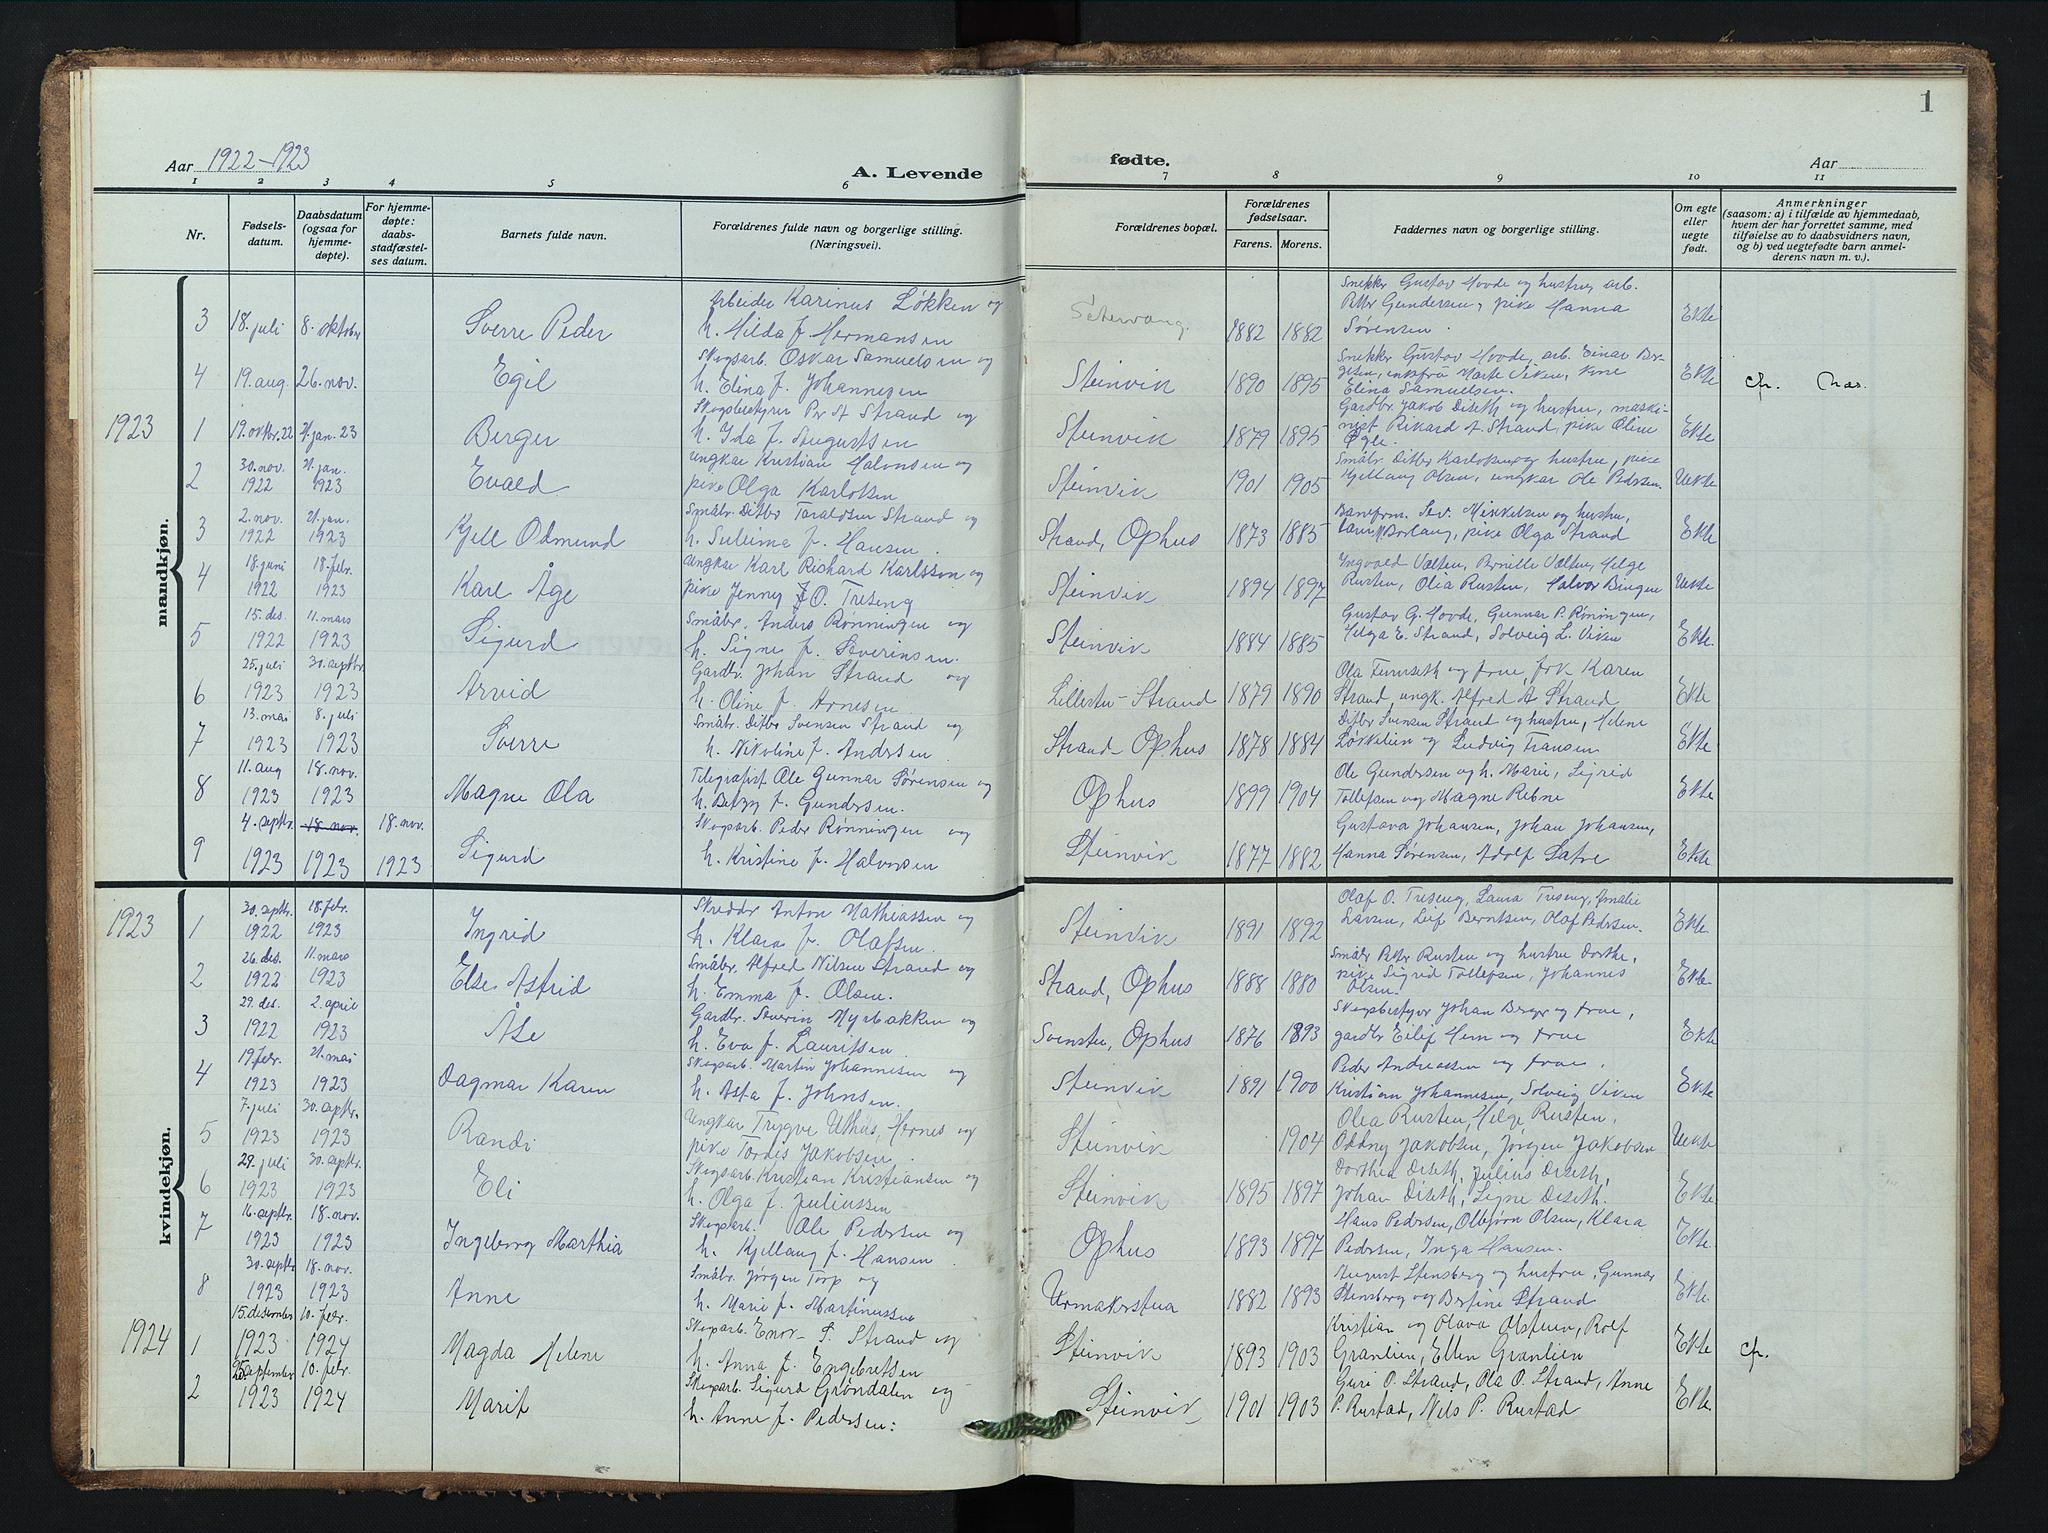 1
Aar 1922-1923
A. Levende
fødte.
Aar
1 2 3 4 5 6 7 8 9 10 11
Nr.
Fødsels-
datum.
Daabsdatum
(ogsaa for
hjemme-
døpte).
For hjemme-
døpte:
daabs-
stadfæstel-
ses datum.
Barnets fulde navn.
Forældrenes fulde navn og borgerlige stilling.
(Næringsvei).
Forældrenes bopæl.
Forældrenes
fødselsaar.
Farens. Morens.
Faddernes navn og borgerlige stilling.
Om egte
eller
uegte
født.
Anmerkninger
(saasom: a) i tilfælde av hjemmedaab,
hvem der har forrettet samme, med
tilføielse av to daabsvidners navn,
og b) ved uegtefødte barn anmel-
derens navn m. v.).
mandkjøn.
Arbeider Karinus Løkken og
Snekker Gustav Hovde og hustru, arb.
Petter Gundersen, pike Hanna
3 18. juli 8. oktober Sverre Peder h. Hilda f. Hermansen Sætervang. 1882 1882 Sørensen. Ekte
Skogsarb. Oskar Samuelsen og
Snekker Gustav Hovde, arb. Einar Ber-
4 19. aug. 26. nov. Egil h. Elina f. Johannesen Steinvik 1890 1895 getsen, enkefru Marte Viken, kone Ekte cfr.
Elina Samuelsen
Skogsbestyrer Per A Strand og
Gardbr. Jakob Diseth og hustru, maski-
1923 1 19. oktbr. 22 21. jan. 23 Berger h. Ida f. Augustsen Steinvik 1879 1895 nist Rikard A. Strand, pike Oline Ekte
30. nov. 21. jan. Ungkar Kristian Halvorsen og
Småbr. Ditlev Karlsen og hustru, pike
2 1922 1923 Evald pike Olga Karlsen Steinvik 1901 1905 Kjellaug Olsen, ungkar Ole Pedersen. Uekte
2. nov. 21. jan. Småbr. Ditlev Taraldsen Strand og
Baneform. Sev. Mikkelsen og hustru,
3 1922 1923 Kjell Odmund h. Sulima f. Hansen. Strand, Ophus 1873 1885 pike Olga Strand Ekte
18. juni 18. febr. Ungkar Karl Richard Karlsson og
Ingvald Velten, Pernille Velten, Helge
4 1922 1923 Karl Åge pike Jenny O. Treseng Steinvik 1894 1897 Rusten, Olea Rusten, Halvor Bingen Uekte
15. des. 11. mars Småbr. Anders Rønningen og
Gustav G. Hovde, Gunnar P. Rønningen,
5 1922 1923 Sigurd h. Signe f. Severinsen. Steinvik 1884 1885 Helga E. Strand, Solveig L. Viken Ekte
25. juli 30. septbr. Gardbr. Johan Strand og
Ola Furuseth og frue, frk Karen
6 1923 1923 Arvid h. Oline f. Arnesen. Lillestu-Strand 1879 1890 Strand ungk. Alfred A Strand Ekte
13. mai 8. juli Småbr. Ditlev Svensen Strand og
Ditlev Svensen Strand og hustru, Helene
7 1923 1923 Sverre h. Nikoline f. Andersen. Strand Ophus 1878 1884 Løkkelien og Ludvig Fransen Ekte
11. aug 18. nov. Telegrafist Ole Gunnar Sørensen og
Ole Gundersen og h. Marie, Sigrid
8 1923 1923 Magne Ola h. Betzy f. Gundersen. Ophus 1899 1904 Tollefsen og Magne Rebne Ekte
4. septbr. 18. nov. 18. nov. Skogsarb. Peder Rønningen og
Gustava Johansen, Johan Johansen,
9 1923 1923 1923 Sigurd h. Kristine f. Halvorsen Steinvik 1877 1882 Hanna Sørensen, Adolf Sætre Ekte
kvindekjøn.
30. septbr. 18. febr. Skredder Anton Mathiassen og
Olaf O. Treseng, Laura Treseng, Amalie
1923 1 1922 1923 Ingrid h. Klara f. Olafsen. Steinvik 1891 1892 Larsen, Leif Berntsen, Olaf Pedersen. Ekte
26. des. 11. mars Småbr. Alfred Nilsen Strand og
Småbr Petter Rusten og hustru Dorthe,
2 1922 1923 Else Astrid h. Emma f. Olsen. Strand, Ophus 1888 1880 pike Sigrid Tollefsen, Johannes Ekte
Olsen.
29. des. 2. april Gardbr. Severin Myrbakken og
Skogbestyer Johan Berger og frue,
3 1922 1923 Åse h. Eva f. Lauritsen. Svenstu, Ophus 1876 1893 gardbr Eilif Hem og frue Ekte
19. febr. 21. mai Skogsarb. Martin Johannesen og
Peder Andreassen og frue,
4 1923 1923 Dagmar Karen h. Asta f. Johnsen. Steinvik 1891 1900 Kristian Johannesen, Solveig Viken Ekte
7. juli 30. septbr. Ungkar Trygve Uthus, Hernes og
Olea Rusten, Helge Rusten,
5 1923 1923 Randi pike Tordis Jakobsen. Steinvik 1904 Oddny Jakobsen, Jørgen Jakobsen Uekte
29. juli 30. septbr. Skogsarb. Kristian Kristiansen og
Dorthea Diseth, Julius Diseth,
6 1923 1923 Eli h. Olga f. Juliussen Steinvik 1895 1897 Johan Diseth, Signe Diseth. Ekte
16. septbr. 18. nov. Skogsarb. Ole Pedersen og
Hans Pedersen, Olbjørn Olsen, Klara
7 1923 1923 Ingeborg Marthia h. Kjellaug f. Hansen. Ophus 1893 1897 Pedersen, Inga Hansen. Ekte
30. septbr 18. nov. Småbr. Jørgen Torp og
August Stensberg og hustru, Gunnar
8 1923 1923 Anne h. Marie f. Martinussen Urmakerstua 1882 1893 Stensberg og Bertine Strand Ekte
15. desember 10. febr. Skogsarb. Enor S. Strand og
Kristian og Olava Olstuen, Rolf
1924 1 1923 1924 Magda Helene h. Anna f. Engebretsen Steinvik 1893 1903 Granlien, Ellen Granlien Ekte cfr.
25 september 10. febr. Skogsarb. Sigurd Grøndalen og
Guri O. Strand, Ola O. Strand, Anne
2 1923 1924 Marit h. Anne f. Pedersen: Steinvik 1901 1903 P. Rustad, Nils P. Rustad Ekte